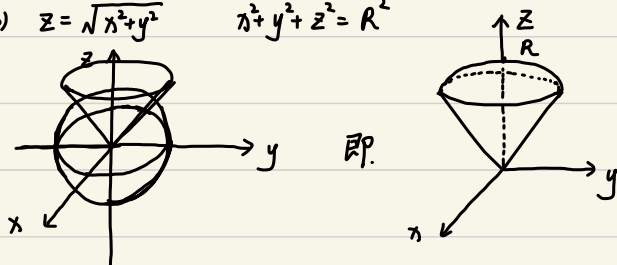 ) z = √x²+y²    x²+y²+z²=R²
z
y
x
即.
z
R
y
x